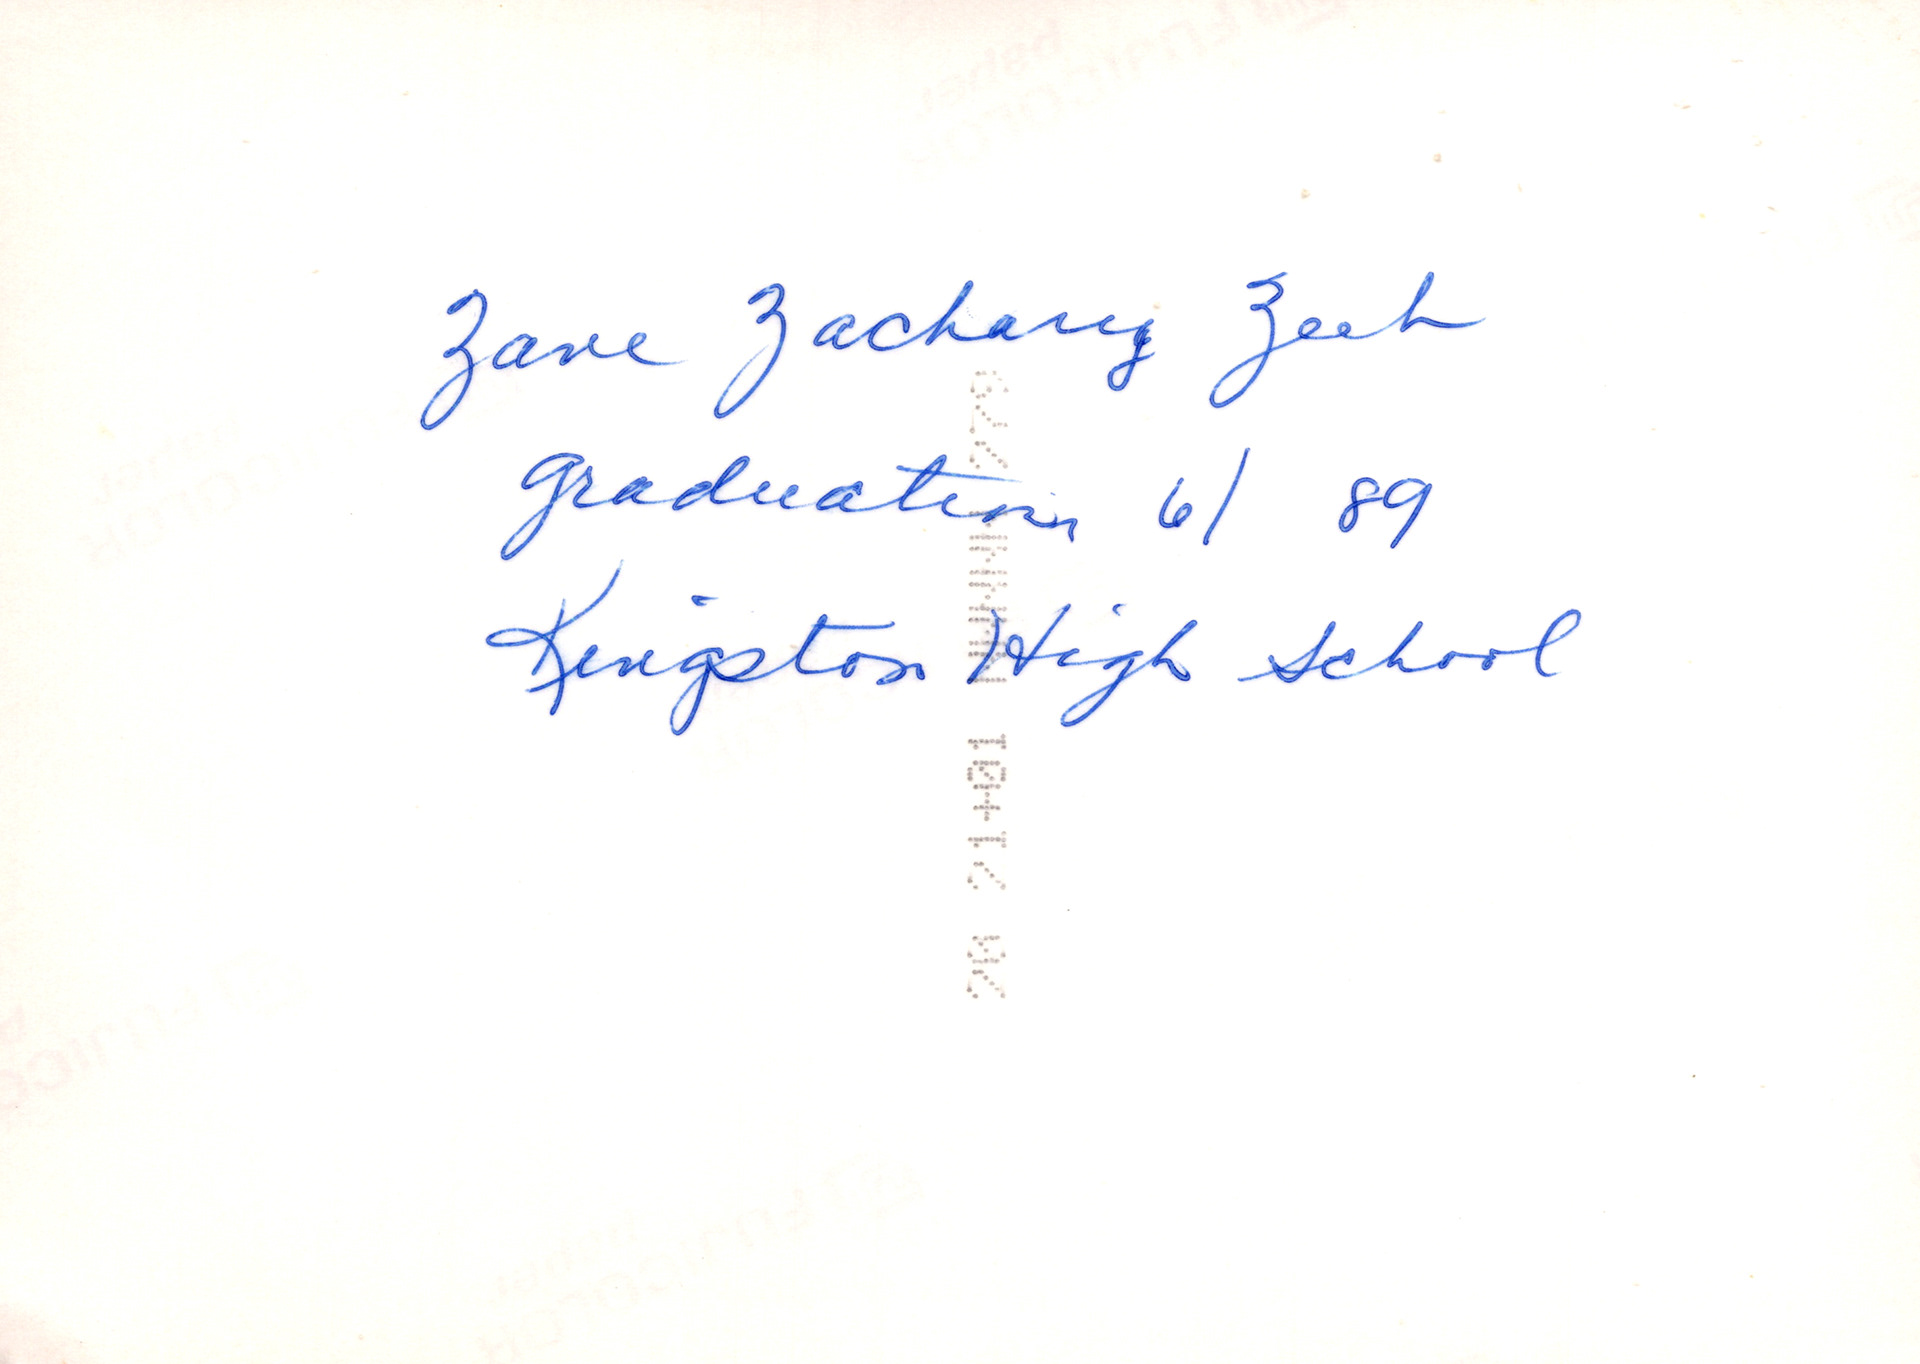 Zane Zachary Zeeh
graduation 6/ 89
Kingston High School